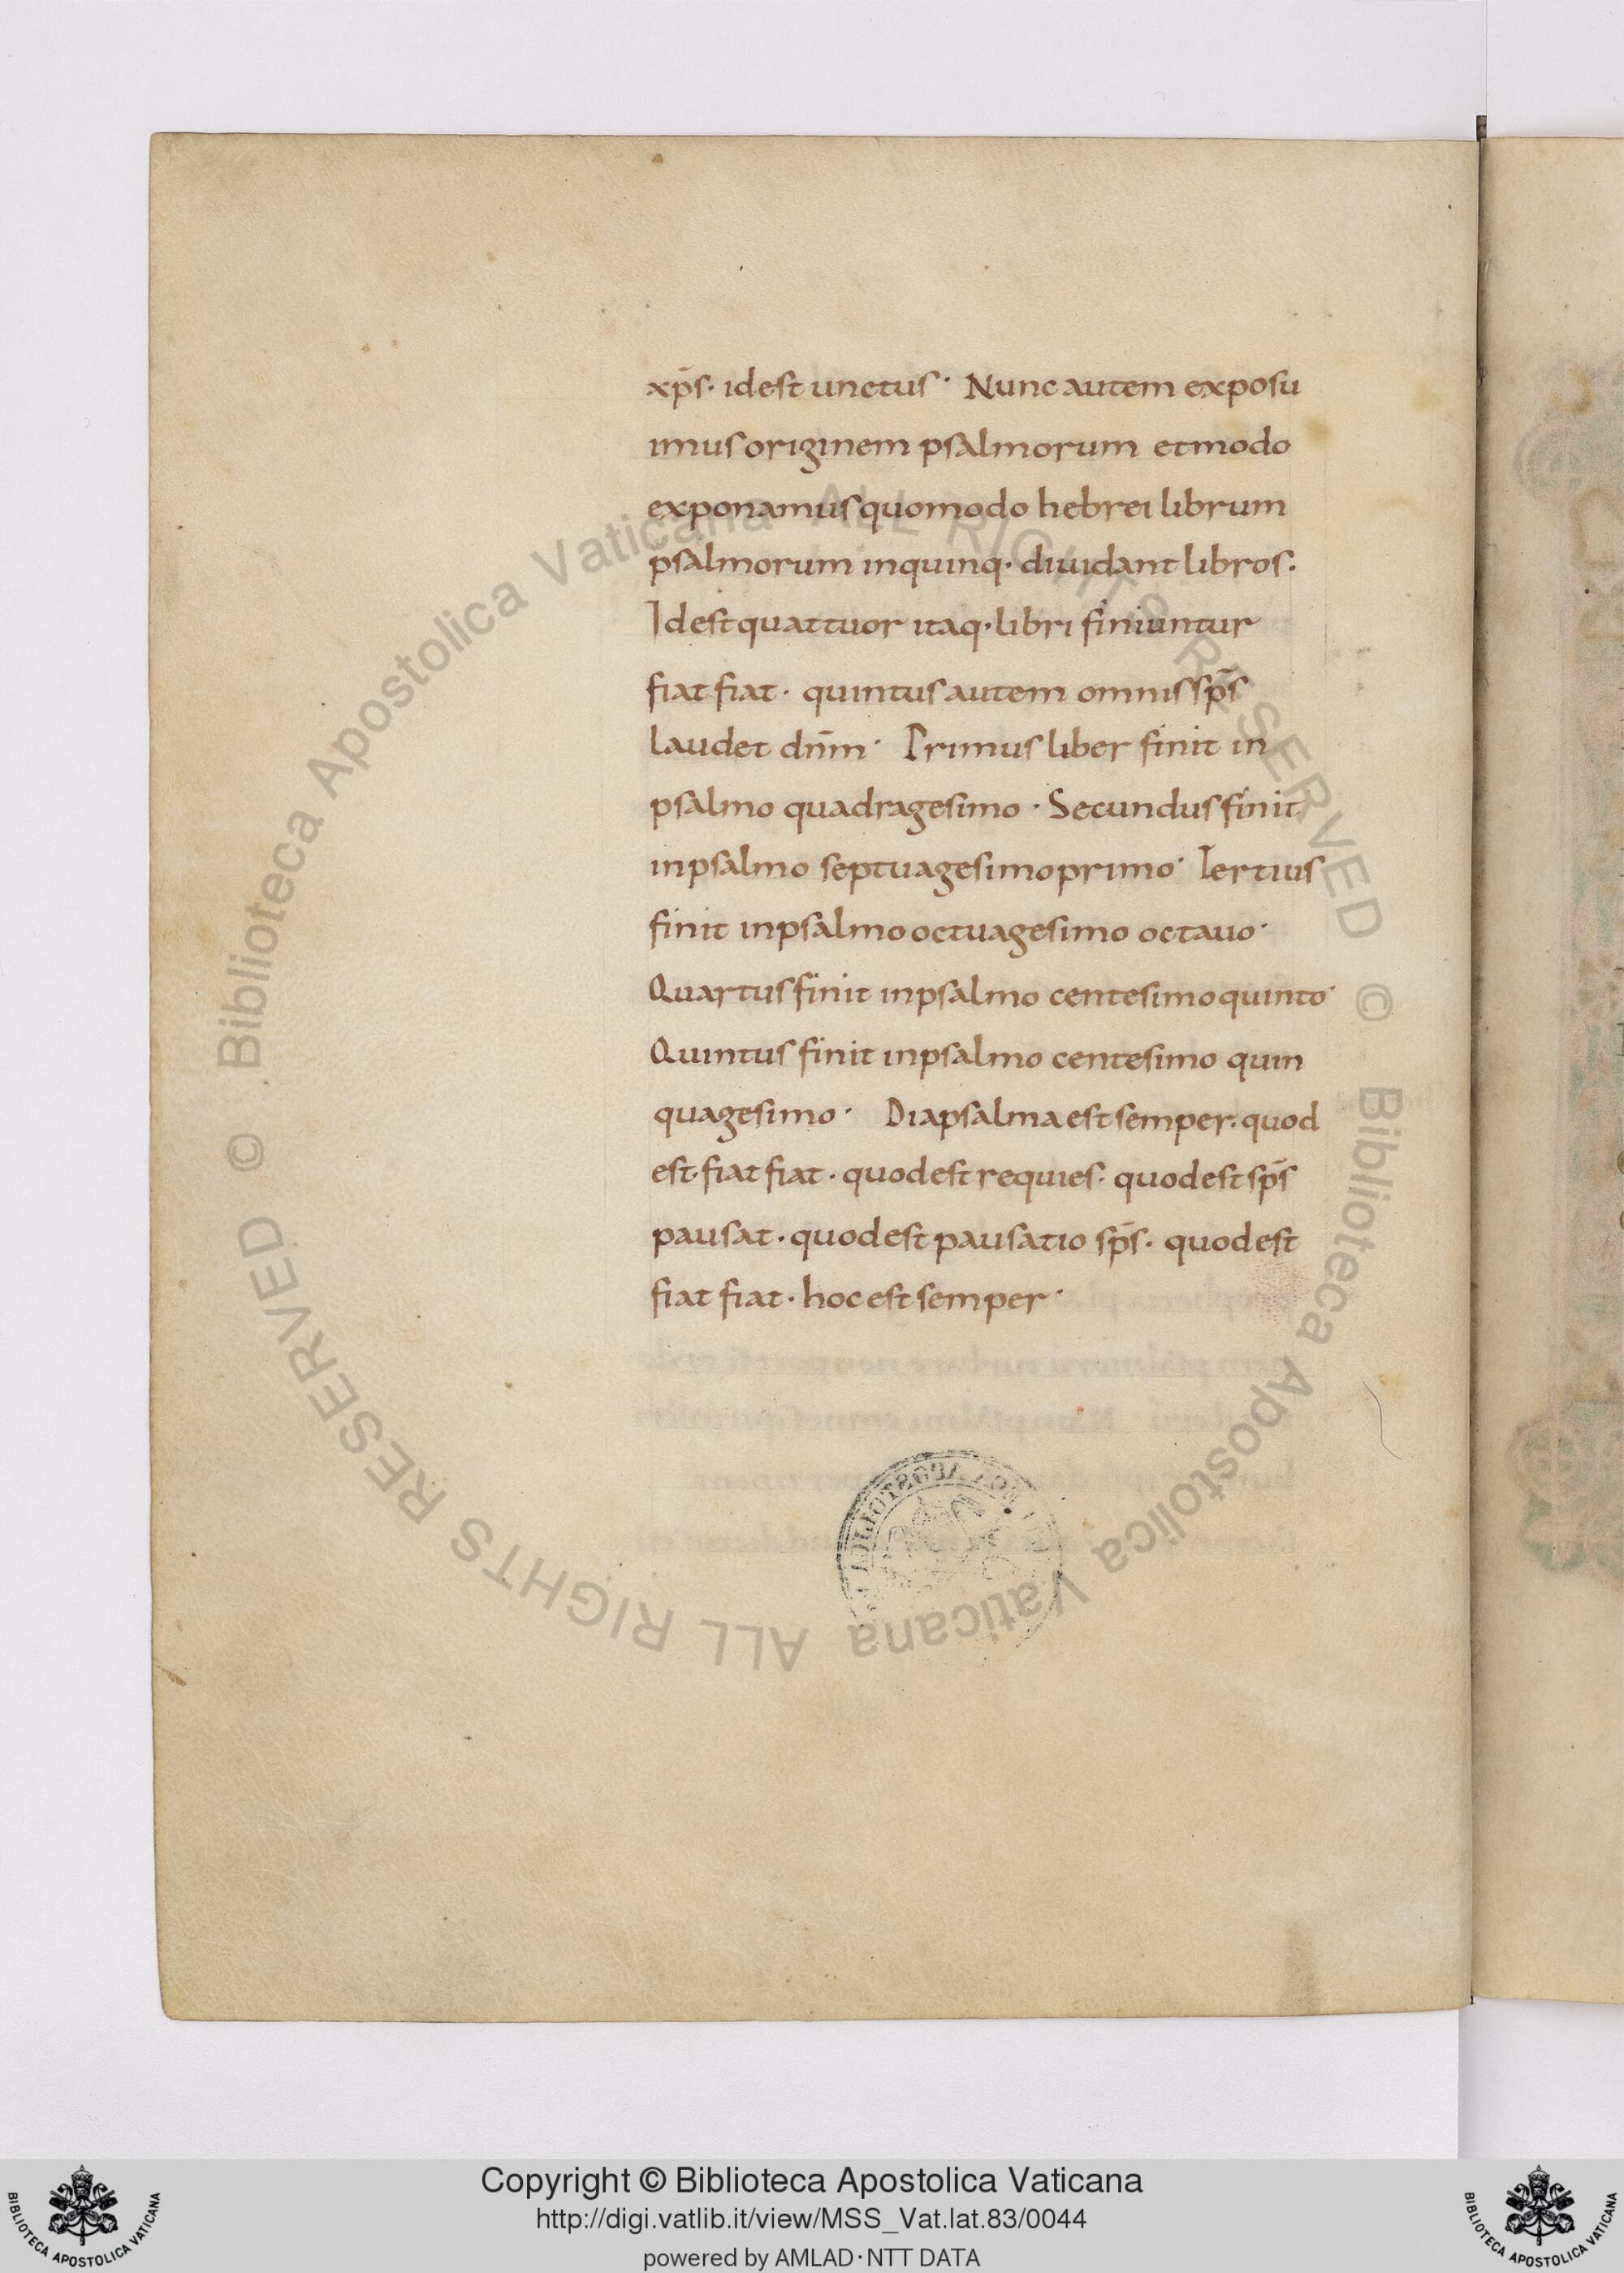 xp̄s· idest unctus· Nunc autem exposu
imus originem psalmorum et modo
exponamus quomodo hebrei librum
psalmorum inquinq· diuidant libros.
Idest quattuor itaq· libri finiuntur
fiat fiat· quintus autem omnis sp̄s
laudet dn̄m· Primus liber finit in
psalmo quadragesimo· Secundus finit
inpsalmo septuagesimo primo· Tertius
finit inpsalmo octuagesimo octauo·
Quartus finit inpsalmo centesimo quinto·
Quintus finit inpsalmo centesimo quin
quagesimo· Diapsalma est semper· quod
est· fiat fiat· quodest requies· quodest sp̄s
pausat· quodest pausatio sp̄s· quodest
fiat fiat· hoc est semper·
© Biblioteca Apostolica Vaticana ALL RIGHTS RESERVED © Biblioteca Apostolica Vaticana ALL RIGHTS RESERVED
Copyright © Biblioteca Apostolica Vaticana
http://digi.vatlib.it/view/MSS_Vat.lat.83/0044
powered by AMLAD·NTT DATA
BIBLIOTECA APOSTOLICA VATICANA
BIBLIOTECA APOSTOLICA VATICANA